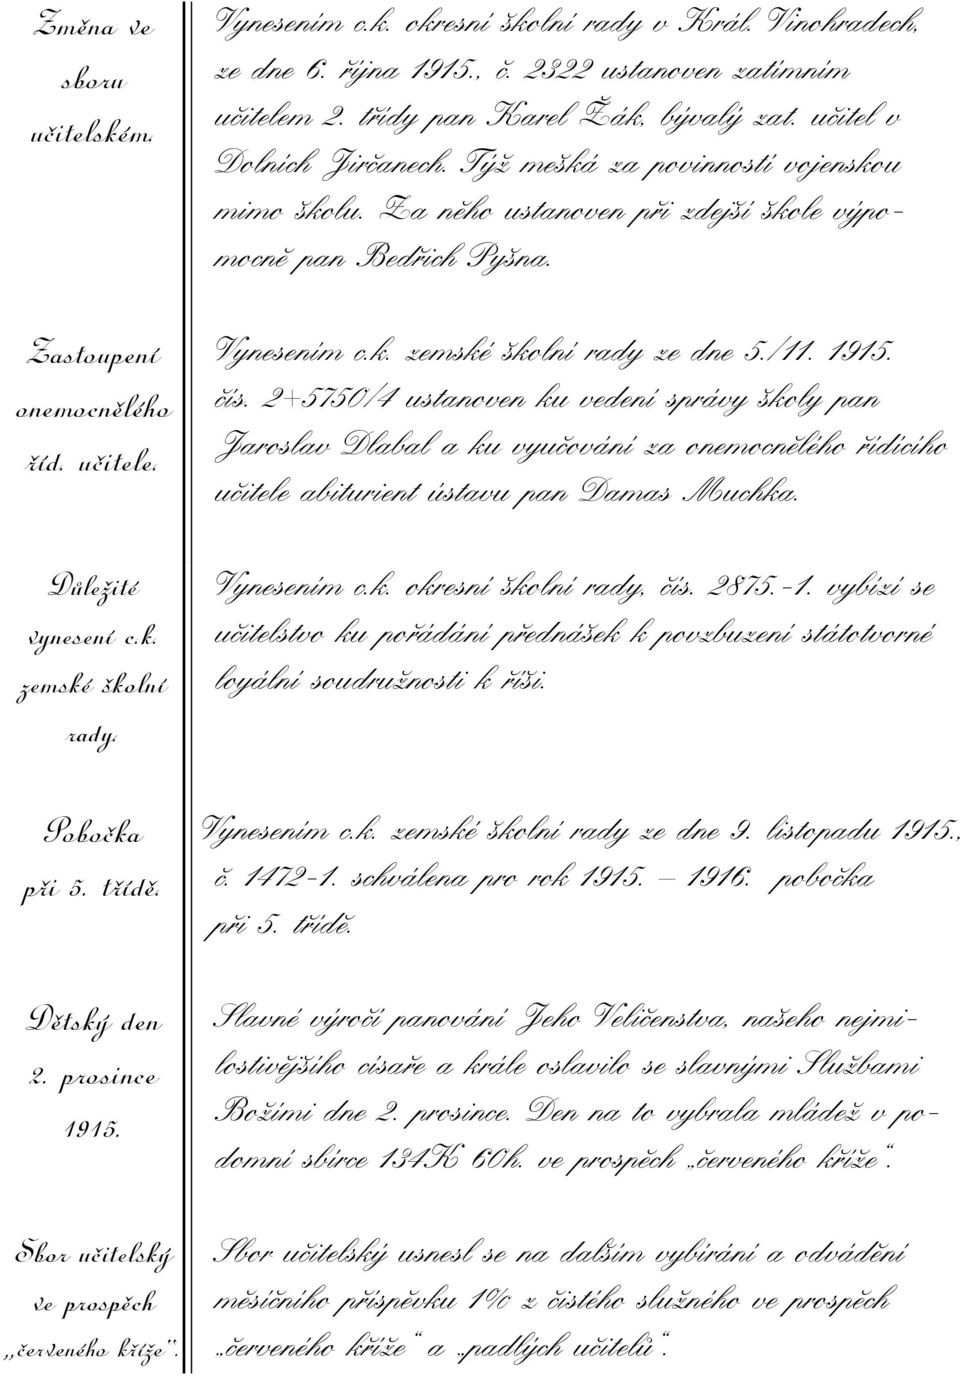 Změna ve
sboru
učitelském.
Vynesením c.k. okresní školní rady v Král. Vinohradech,
ze dne 6. října 1915., č. 2322 ustanoven zatímním
učitelem 2. třídy pan Karel Žák, bývalý zat. učitel v
Dolních Jirčanech. Týž mešká za povinností vojenskou
mimo školu. Za něho ustanoven při zdejší škole výpo-
mocně pan Bedřich Pyšna.
Zastoupení
onemocnělého
říd. učitele.
Vynesením c.k. zemské školní rady ze dne 5./11. 1915.
čís. 2+5750/4 ustanoven ku vedení správy školy pan
Jaroslav Dlabal a ku vyučování za onemocnělého řídícího
učitele abiturient ústavu pan Damas Muchka.
Důležité
vynesení c.k.
zemské školní
rady.
Vynesením c.k. okresní školní rady, čís. 2875.-1. vybízí se
učitelstvo ku pořádání přednášek k povzbuzení státotvorné
loyální soudružnosti k říši.
Pobočka
při 5. třídě.
Vynesením c.k. zemské školní rady ze dne 9. listopadu 1915.,
č. 1472-1. schválena pro rok 1915. – 1916. pobočka
při 5. třídě.
Dětský den
2. prosince
1915.
Slavné výročí panování Jeho Veličenstva, našeho nejmi-
lostivějšího císaře a krále oslavilo se slavnými Službami
Božími dne 2. prosince. Den na to vybrala mládež v po-
domní sbírce 134K 60h. ve prospěch „červeného kříže“.
Sbor učitelský
ve prospěch
„červeného kříže“.
Sbor učitelský usnesl se na dalším vybírání a odvádění
měsíčního příspěvku 1% z čistého služného ve prospěch
„červeného kříže“ a „padlých učitelů“.